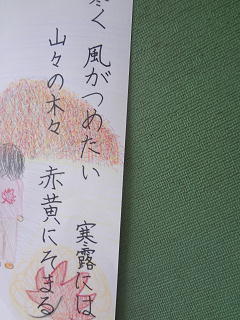 寒露には
く 風がつめたい
山々の木々 赤黄にそまる